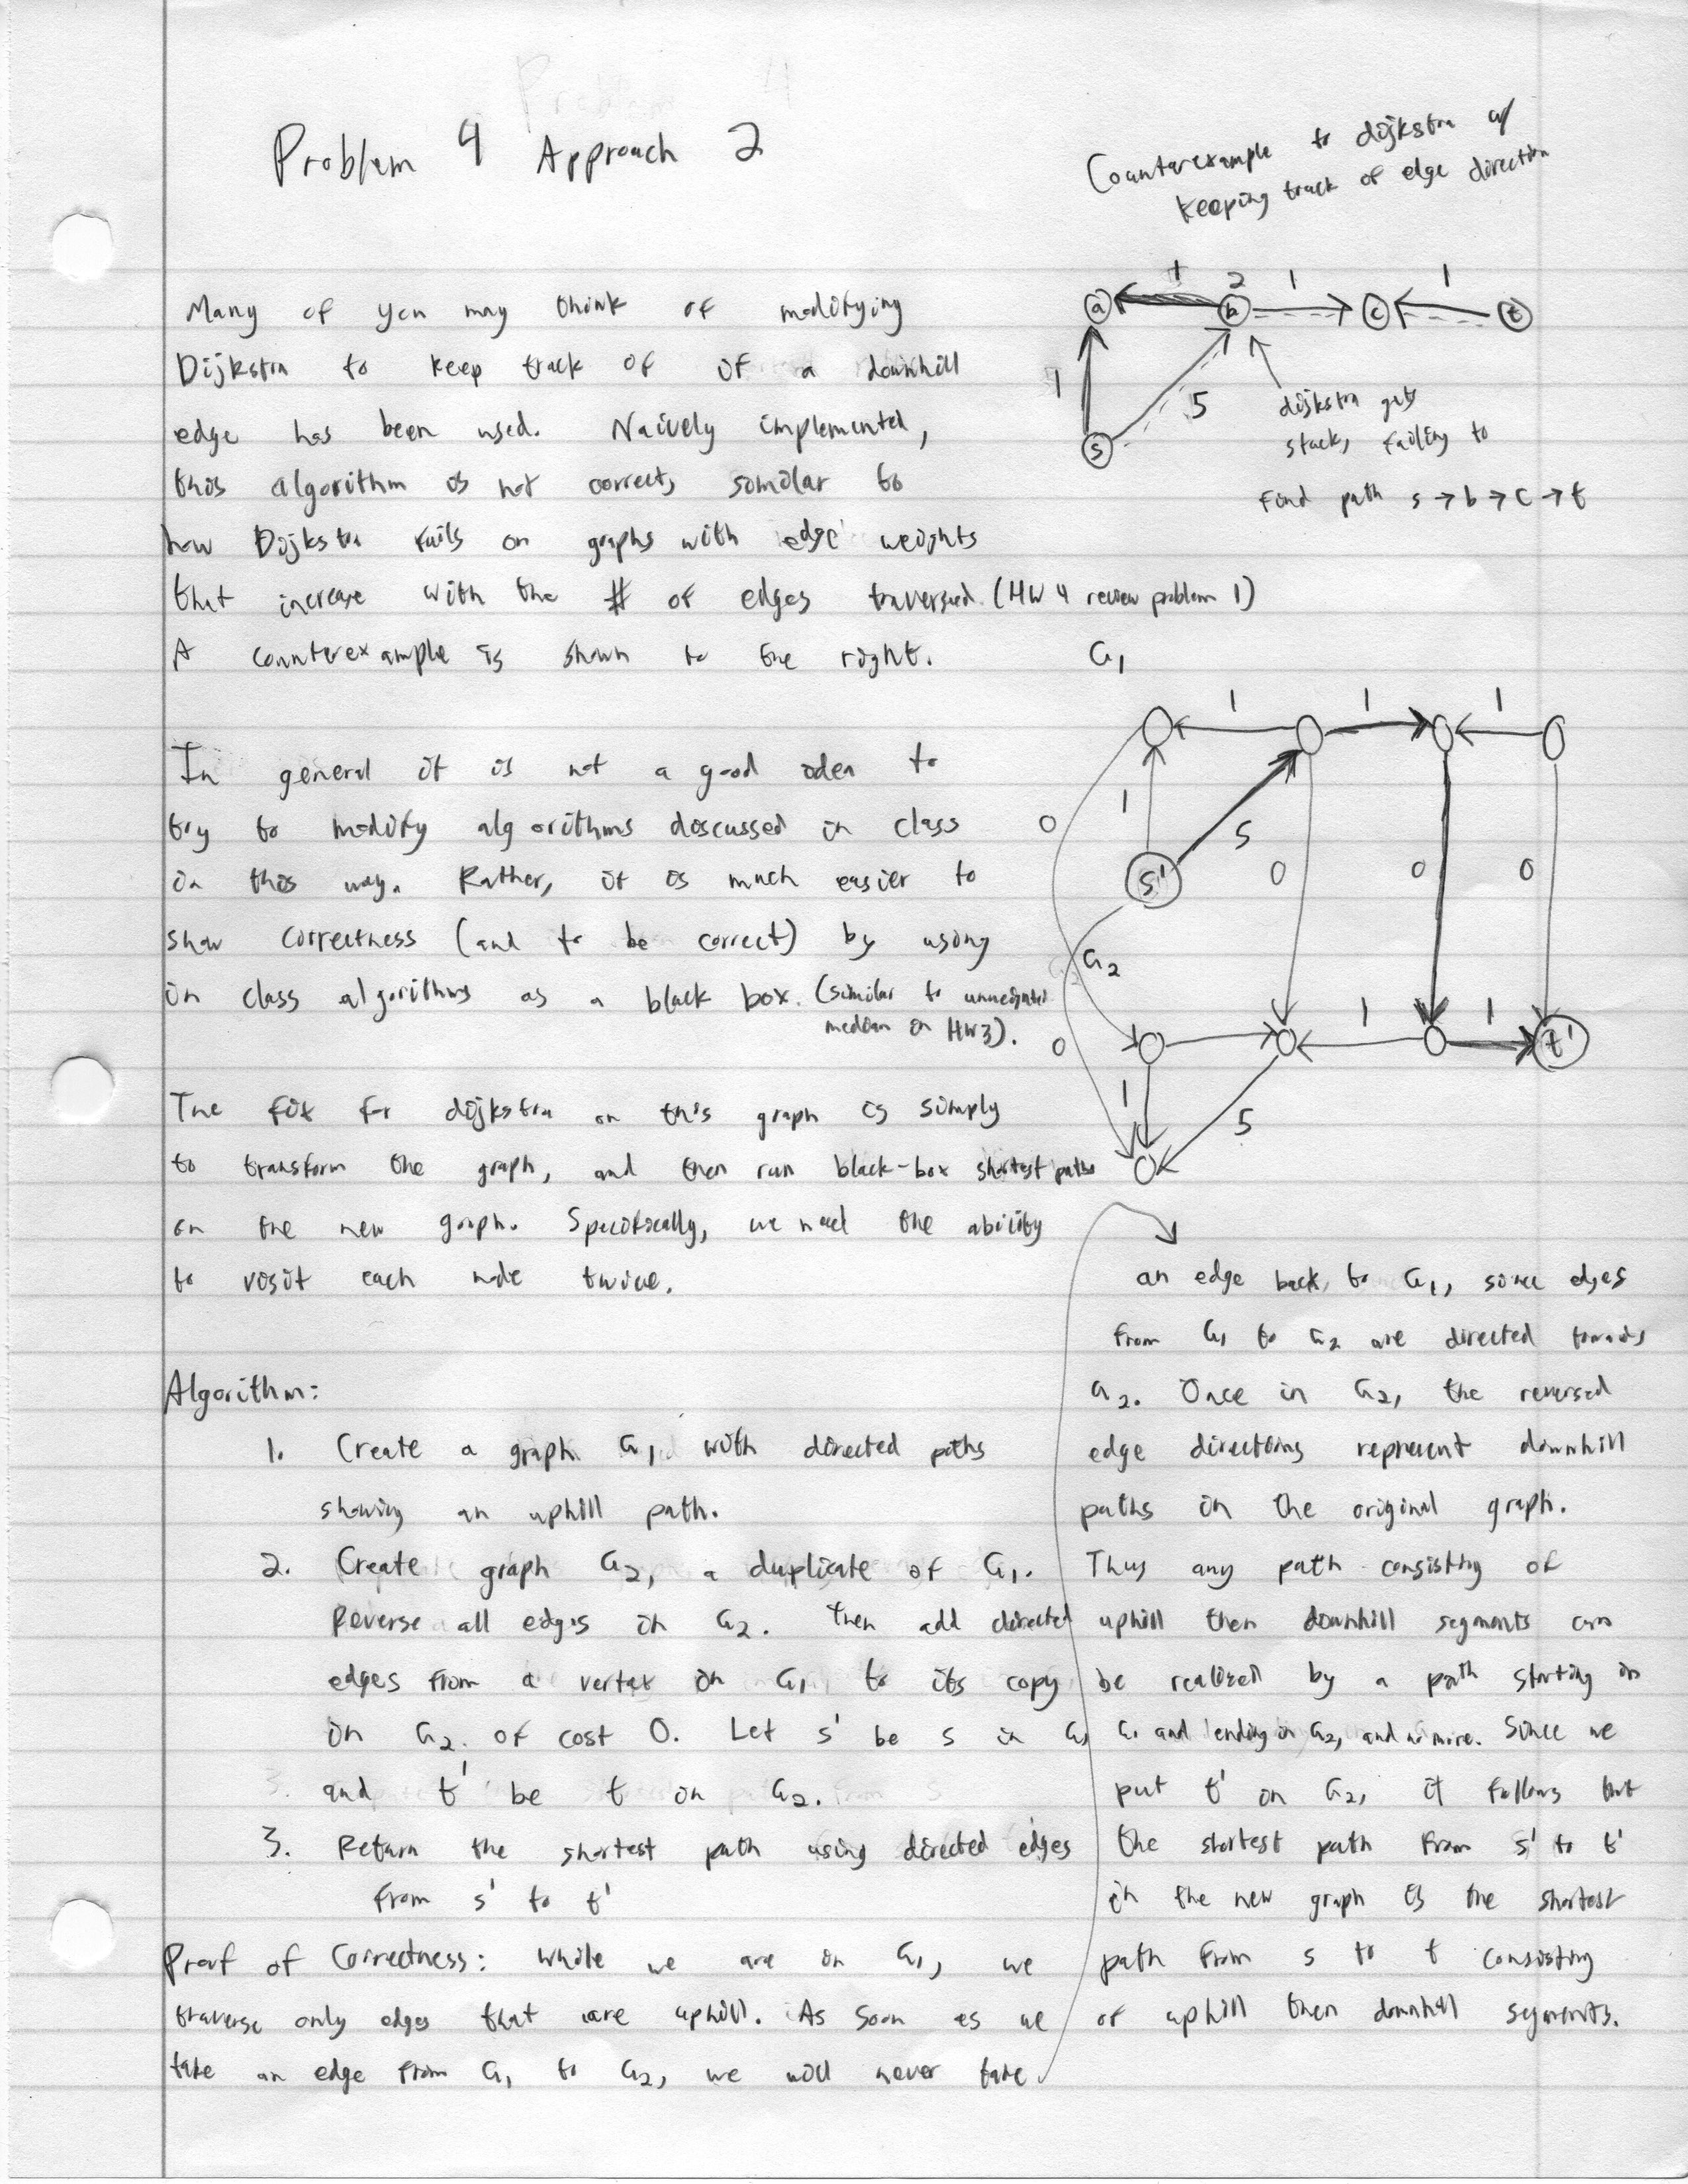 Problem 4 Approach 2
Counterexample to dijkstra w/
keeping track of edge direction
Many of you may think of modifying
Dijkstra to keep track of if a downhill
edge has been used. Naively implemented,
this algorithm is not correct, similar to
how Dijkstra fails on graphs with edge weights
that increase with the # of edges traversed. (HW 4 review problem 1)
A counterexample is shown to the right.
1 2 1 1
a b c t
1
5
s
dijkstra gets
stuck, failing to
find path s → b → c → t
In general it is not a good idea to
try to modify algorithms discussed in class
in this way. Rather, it is much easier to
show correctness (and to be correct) by using
in class algorithms as a black box. (similar to unweighted
median on HW3).
The fix for dijkstra on this graph is simply
to transform the graph, and then run black-box shortest paths
on the new graph. Specifically, we need the ability
to visit each node twice.
G1
1 1 1
0 1 5 0 0 0
s'
G2
0 1 1 t'
1 5
Algorithm:
1. Create a graph G1 with directed paths
showing an uphill path.
2. Create graph G2, a duplicate of G1.
Reverse all edges in G2. Then add directed
edges from a vertex in G1 to its copy
in G2 of cost 0. Let s' be s in G1
and t' be t in G2.
3. Return the shortest path using directed edges
from s' to t'
Proof of Correctness: While we are on G1, we
traverse only edges that are uphill. As soon as we
take an edge from G1 to G2, we will never take
an edge back to G1, since edges
from G1 to G2 are directed towards
G2. Once in G2, the reversed
edge directions represent downhill
paths in the original graph.
Thus any path consisting of
uphill then downhill segments can
be realized by a path starting in
G1 and ending in G2, and no more. Since we
put t' on G2, it follows that
the shortest path from s' to t'
in the new graph is the shortest
path from s to t consisting
of uphill then downhill segments.